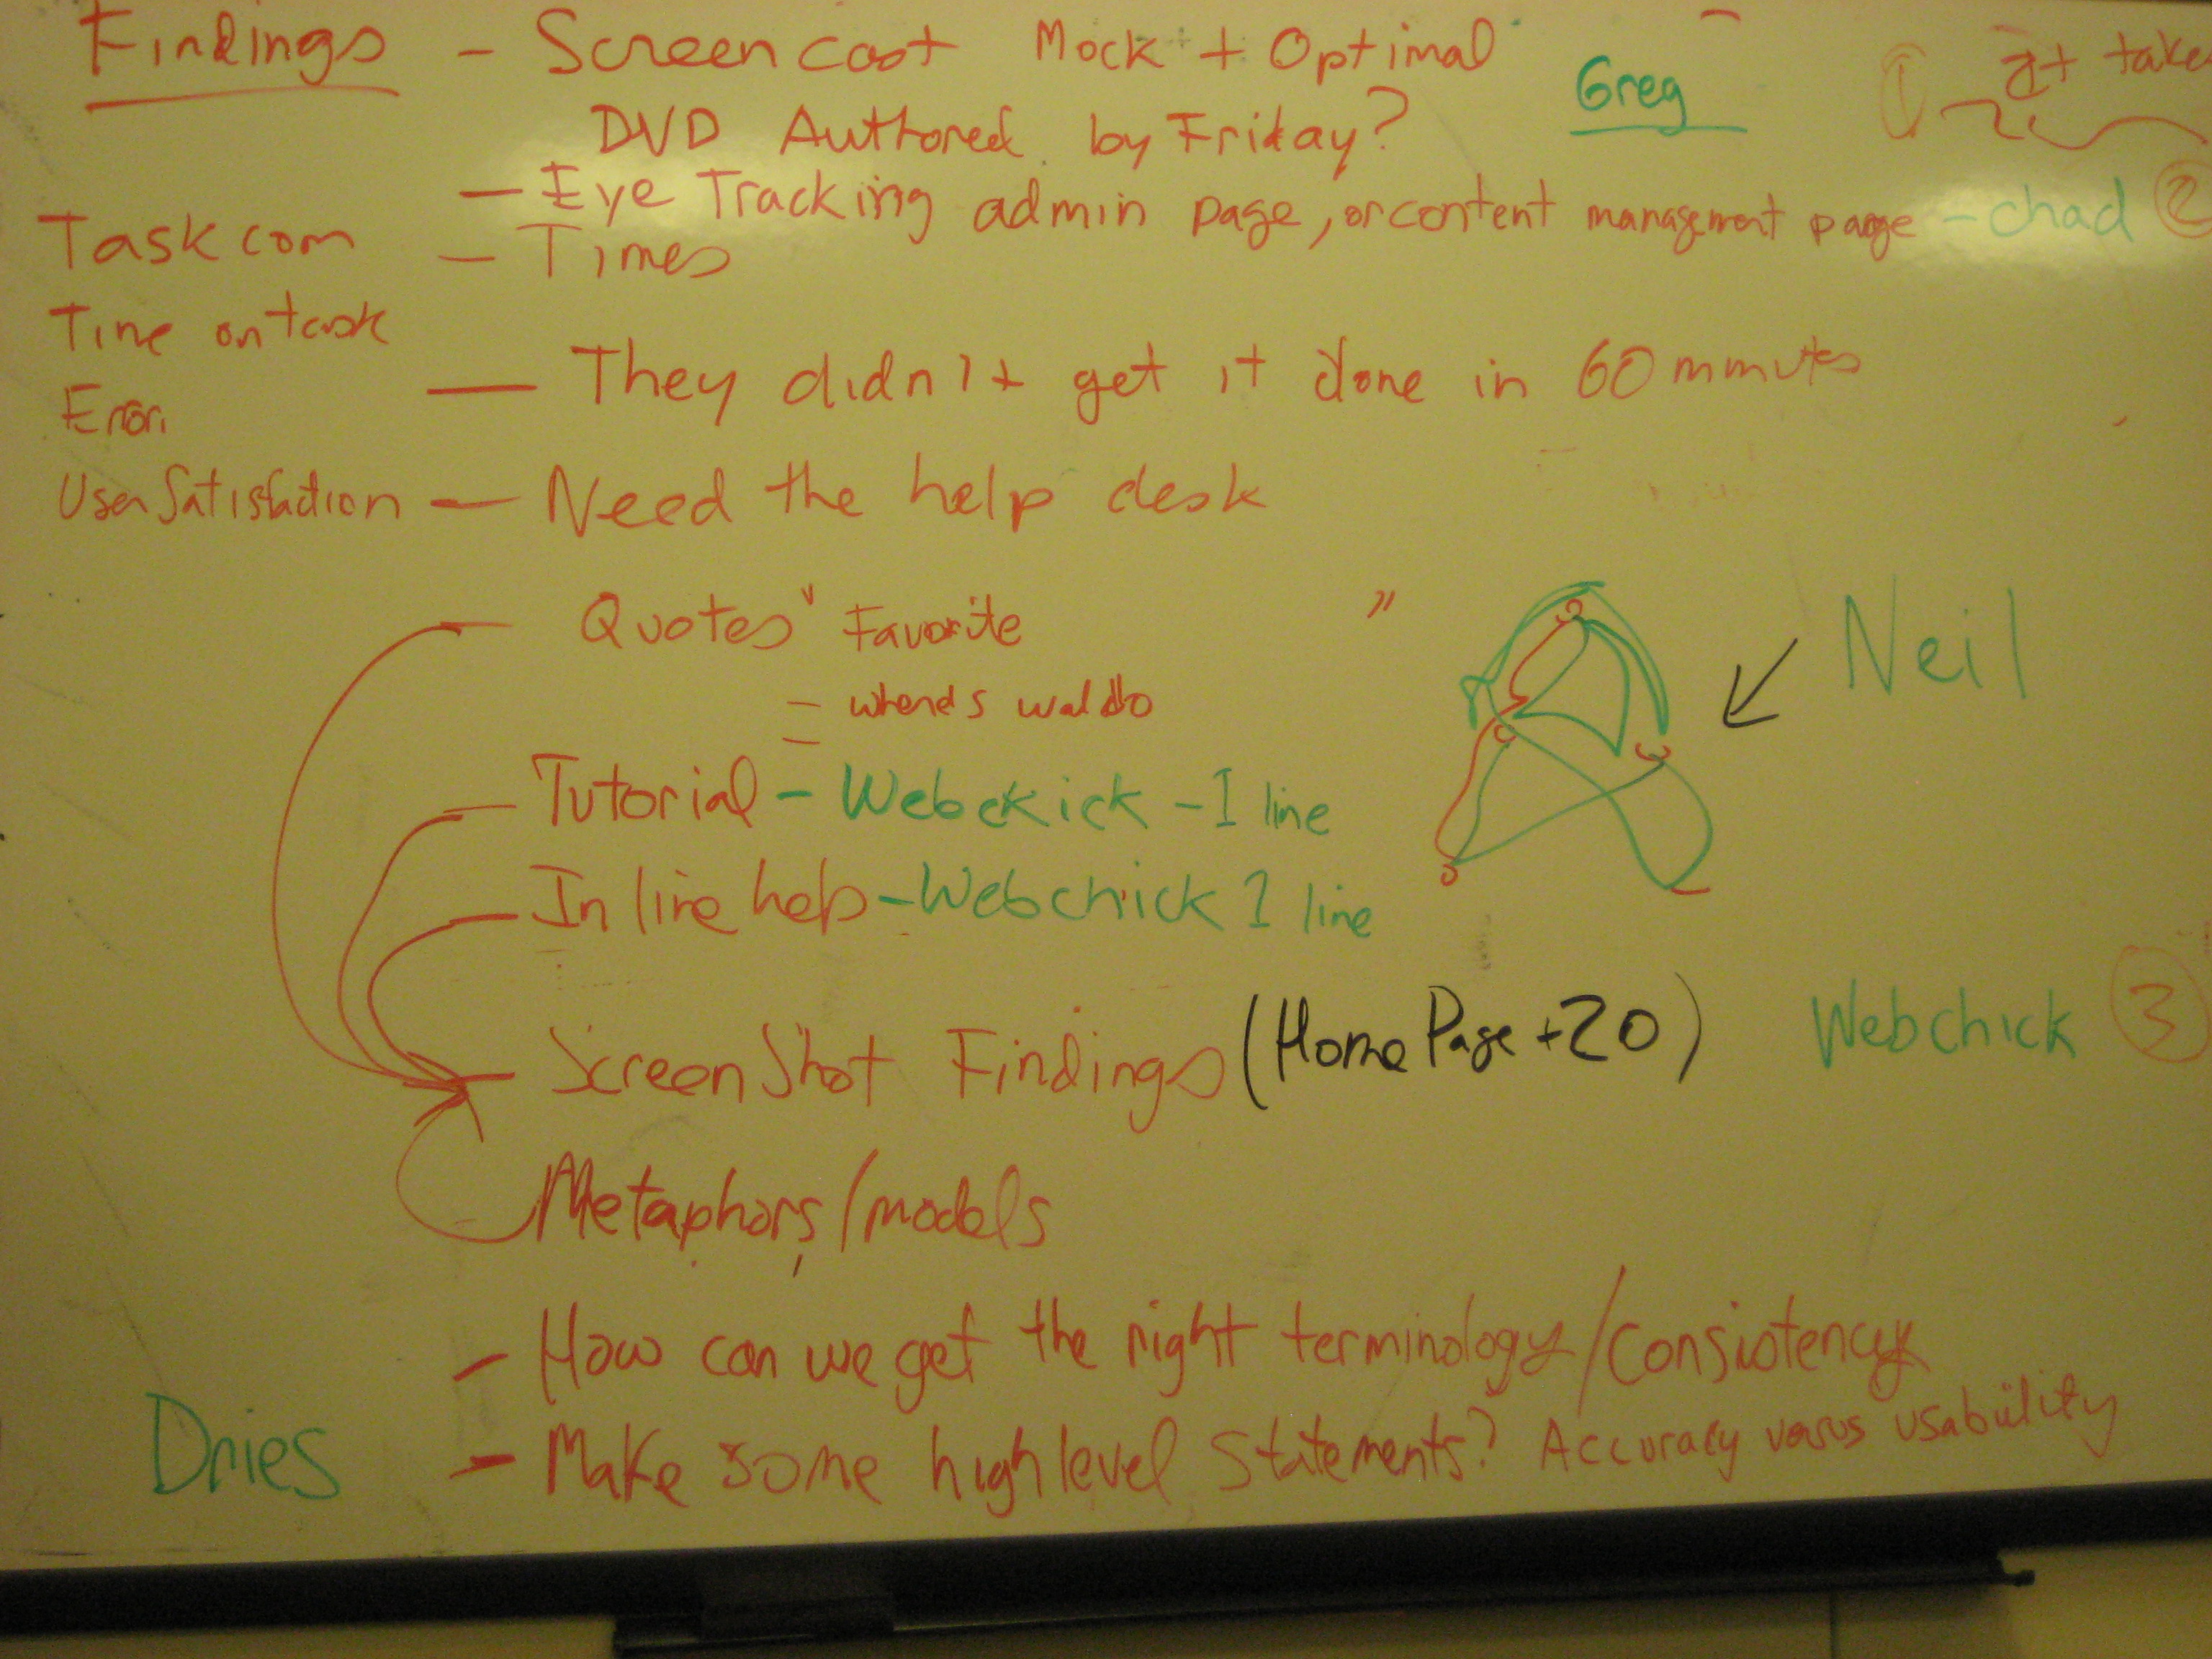 Findings - Screencast Mock + Optimal
DVD Authored by Friday?
Greg
1
at take
- Eye Tracking admin page, or content management page - chad 2
Task com - Times
Time on task
— They didn't get it done in 60 minutes
Error
User Satisfaction — Need the help desk
— Quotes " Favorite "
= wheres waldo
Neil
- Tutorial - Webckick - 1 line
- In line help - Webchick 1 line
- Screen Shot Findings (Home Page + 20) Webchick 3
Metaphors/models
- How can we get the right terminology/consistency
Dries - Make some high level Statements? Accuracy versus usability